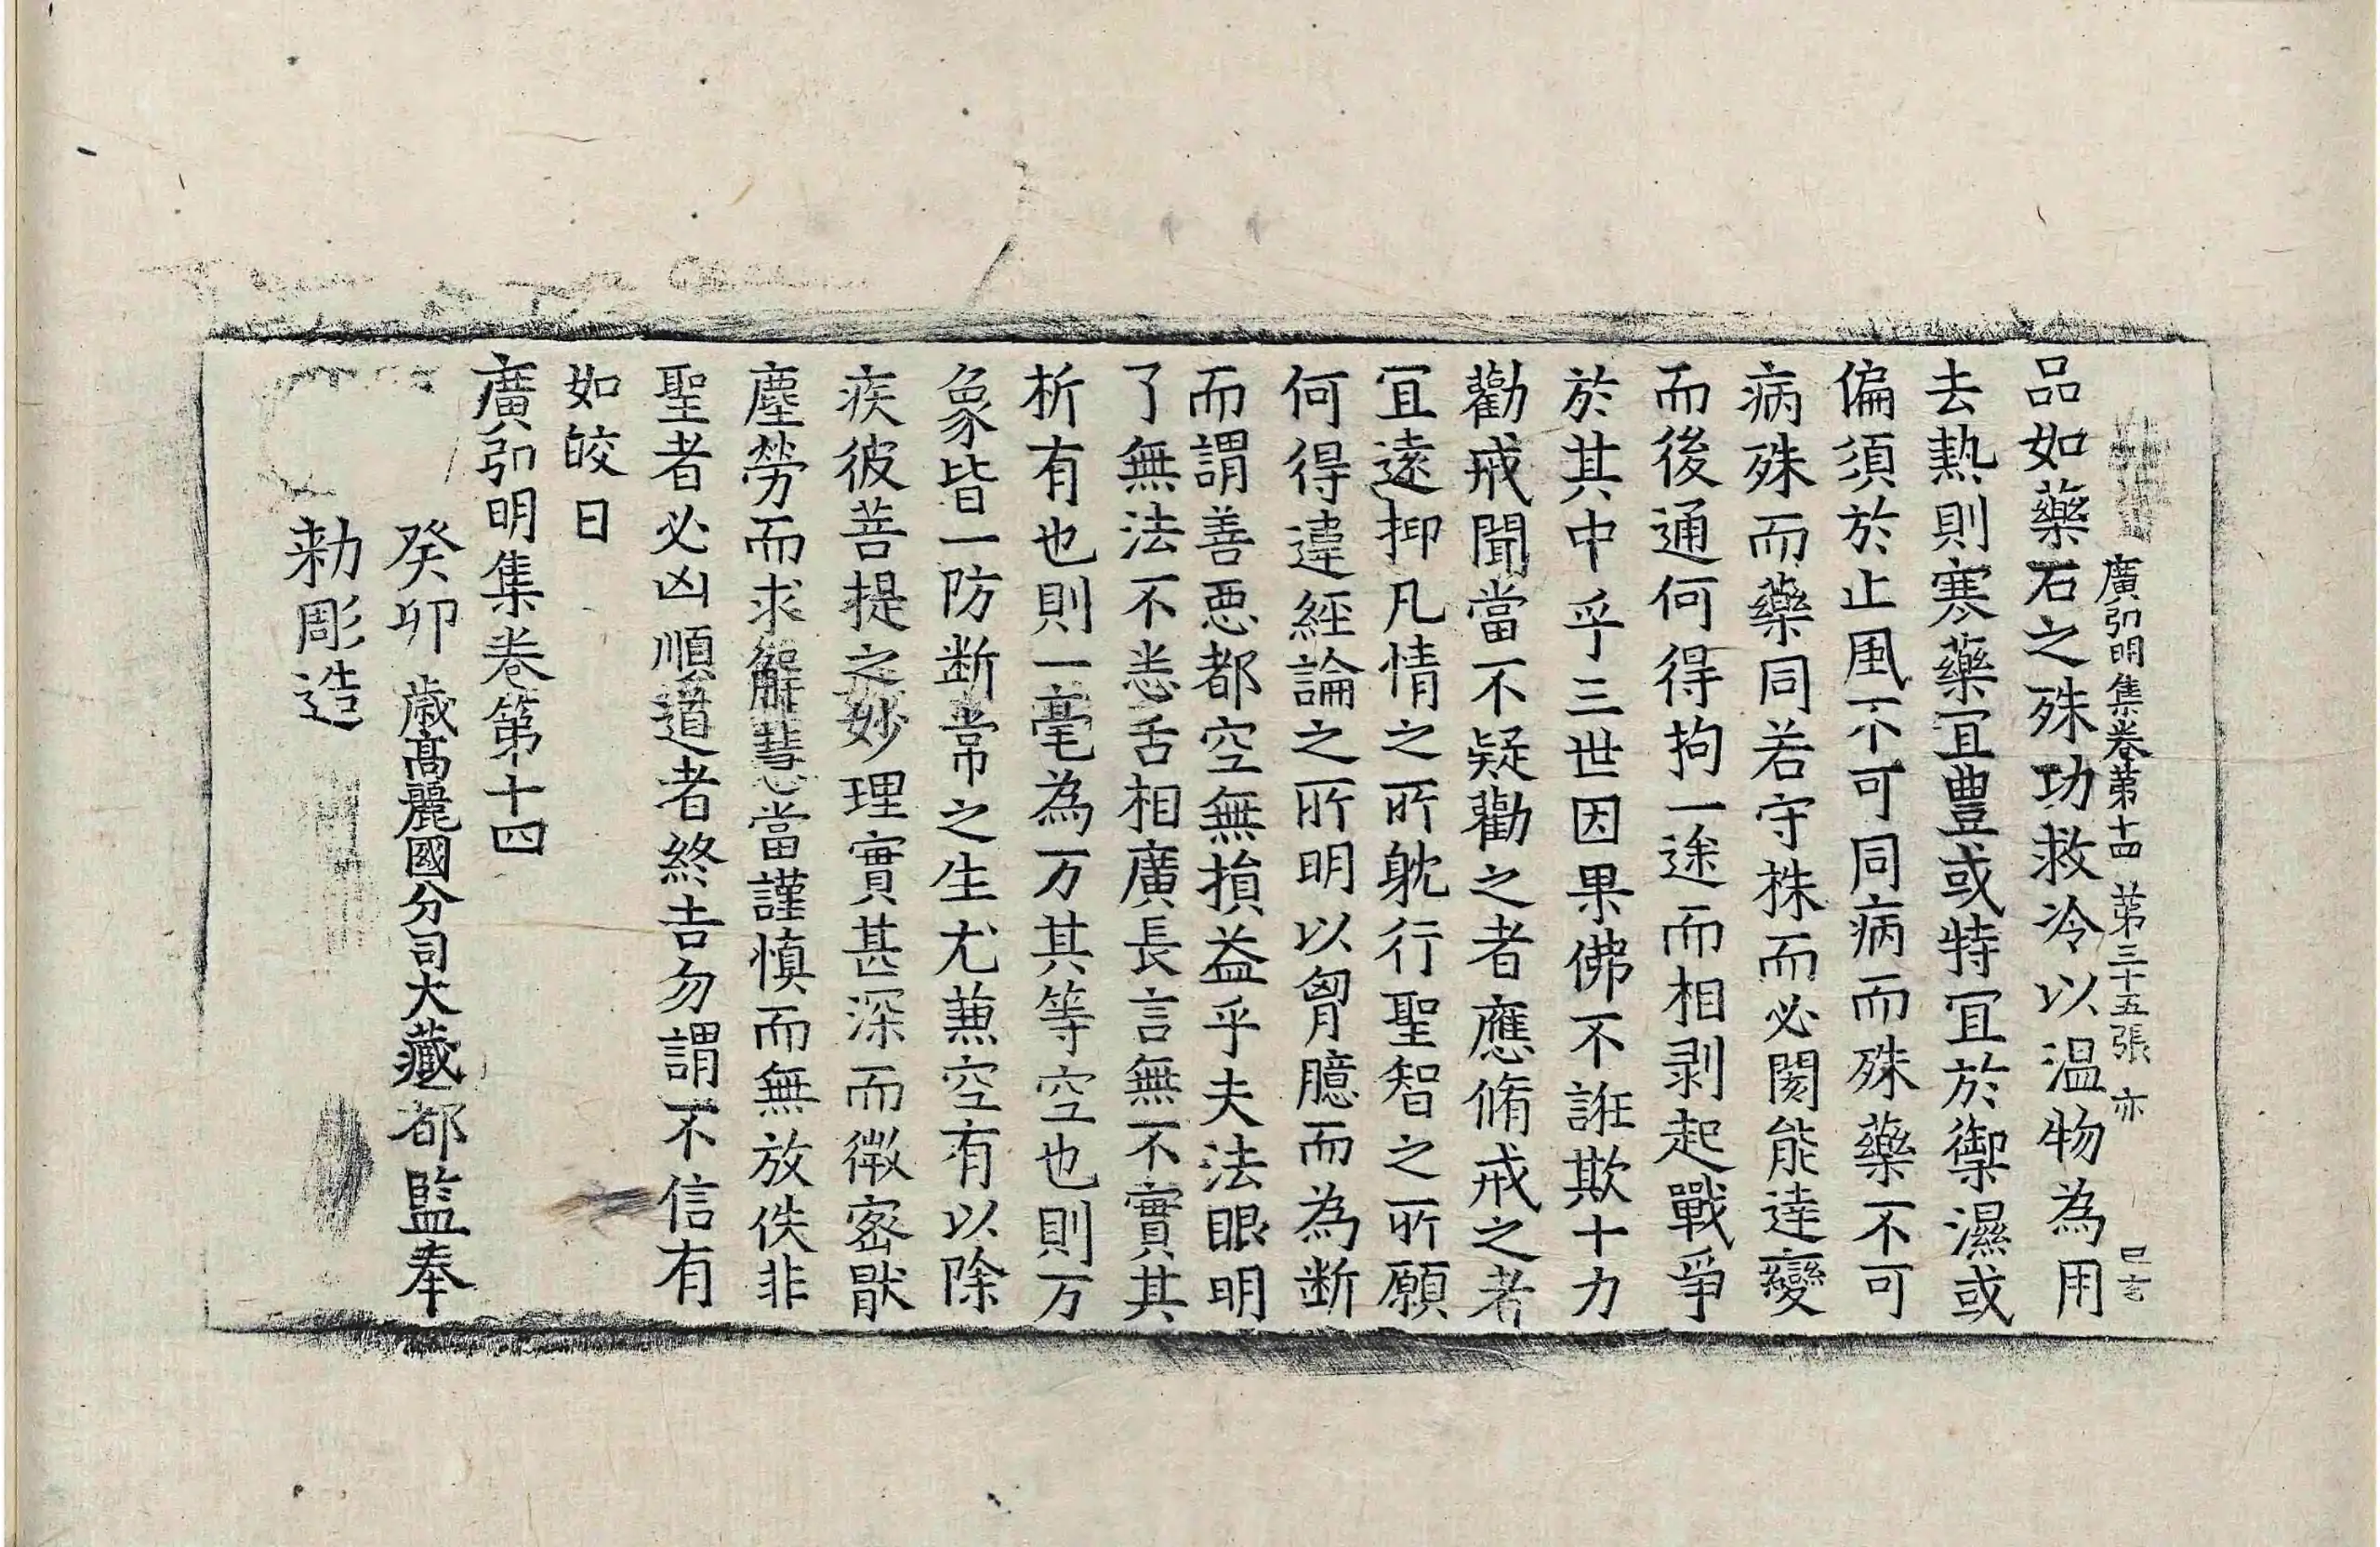 廣弘明集卷第十四 第三十五張 亦
品如藥石之殊功救冷以温物為用
去熱則寒藥宜豊或特宜於禦濕或
偏須於止風不可同病而殊藥不可
病殊而藥同若守株而必閡能達變
而後通何得拘一途而相剥起戰爭
於其中乎三世因果佛不誑欺十力
勸戒聞當不疑勸之者應脩戒之者
宜遠抑凡情之所躭行聖智之所願
何得違經論之所明以胷臆而為断
而謂善惡都空無損益乎夫法眼明
了無法不悉舌相廣長言無不實其
析有也則一毫為万其等空也則万
象皆一防断常之生尤蕙空有以除
疾彼菩提之妙理實甚深而微宻猒
塵勞而求解慧當謹慎而無放佚非
聖者必凶順道者終吉勿謂不信有
如皎日
廣弘明集卷第十四
癸卯歳高麗國分司大藏都監奉
勅彫造